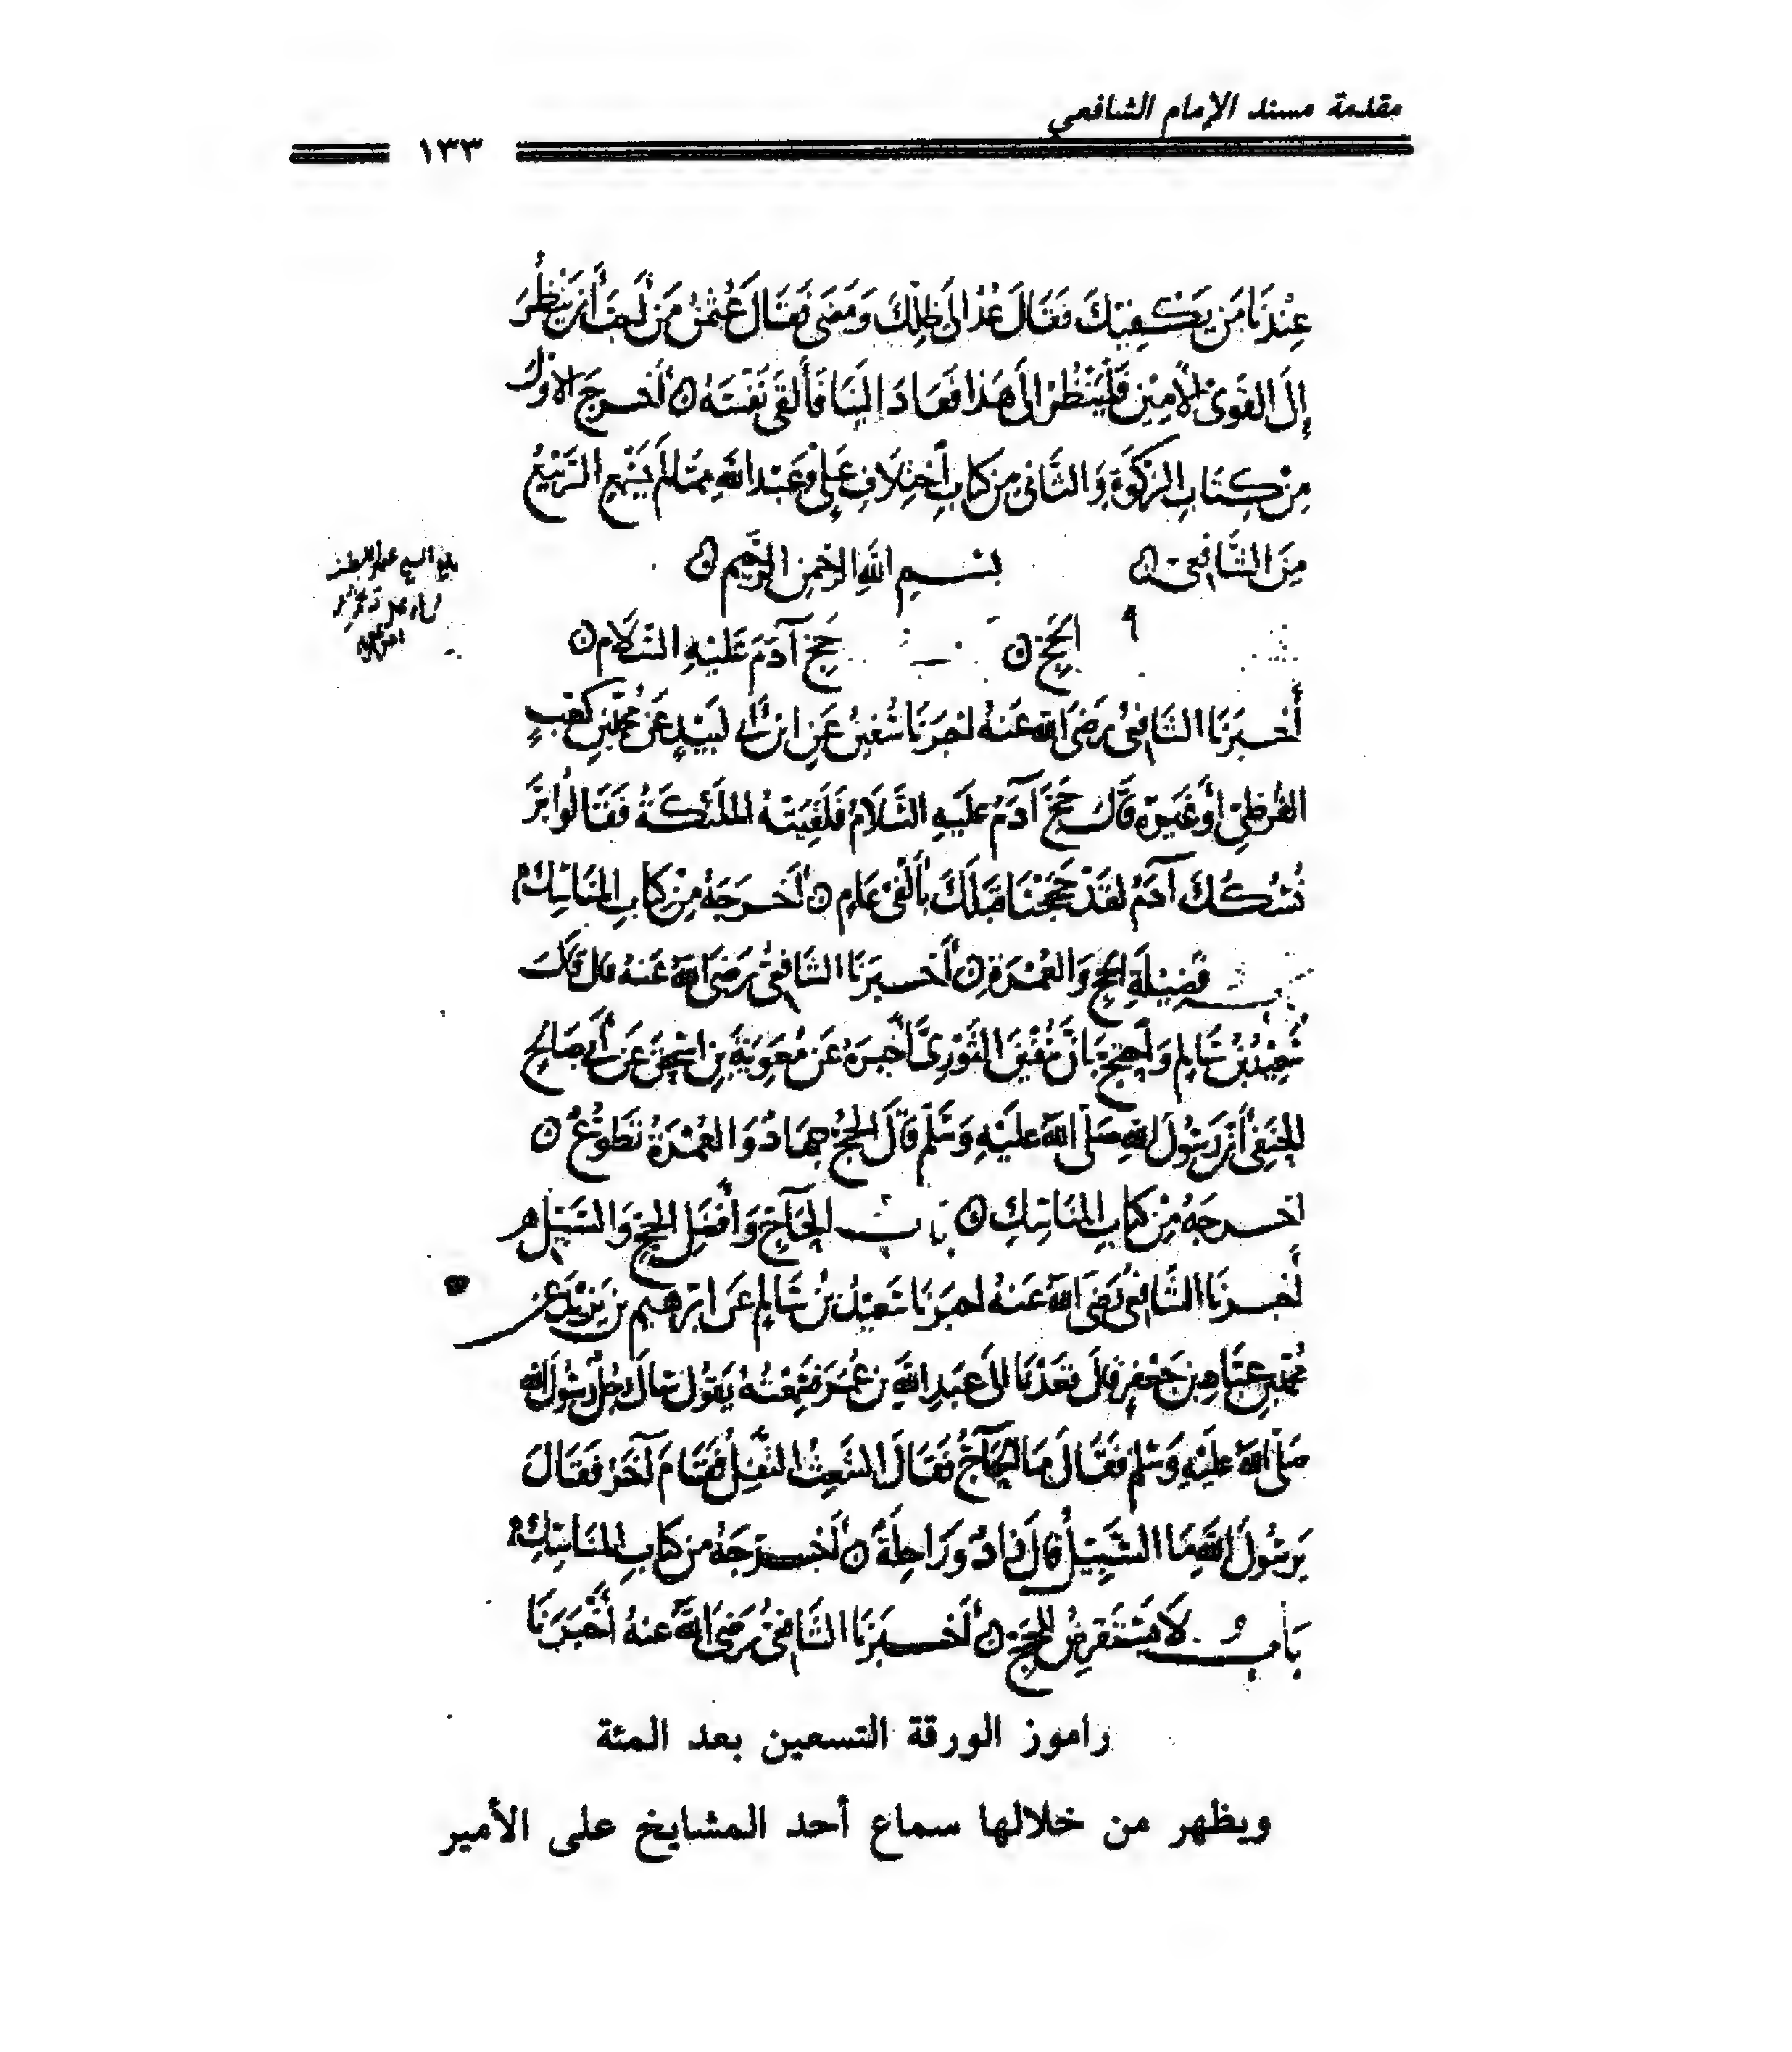 مقدمة مسند الإمام الشافعي
١٣٣
عِنْدَنَا مَن يَكْفِيكَ فَقَالَ عُدْ الَى ظِلِّكَ وَمَضَى فَقَالَ عُثْمٰنُ مَنْ أَحَبَّ أَن يَنْظُرَ
إِلَى القَوِىِّ الأَمِيْنِ فَلْيَنْظُرْ الَى هَذَا فَعَادَ الَيْنَا فَأَلْقَى نَفْسَهُ أَخْرَجَ الأوّلَ
مِنْ كِتَابِ الزَّكٰوةِ وَالثَّانِى مِنْ كِتَابِ اخْتِلَافِ عَلِىٍّ وَعَبْدِ اللهِ مِمَّا لَمْ يَسْمَعِ الرَّبِيْعُ
مِنَ الشَّافِعِى
بِسْمِ اللهِ الرَّحْمٰنِ الرَّحِيْمِ
الحَجّ
حَجّ آدَمَ عَلَيْهِ السَّلَام
أَخْبَرَنَا الشَّافِعِىُّ رَضِىَ اللهُ عَنْهُ أَخْبَرَنَا سُفْيٰنُ عَنِ ابْنِ أَبِى لَبِيْدٍ عَنْ مُحَمَّدِ بْنِ كَعْبٍ
القُرَظِىِّ أَوْ غَيْرِهِ قَالَ حَجَّ آدَمُ عَلَيْهِ السَّلَامُ فَلَقِيَتْهُ المَلٰئِكَةُ فَقَالُوا بَرَّ
نُسُكُكَ آدَمُ لَقَدْ حَجَجْنَا قَبْلَكَ بِأَلْفَىْ عَامٍ أَخْرَجَهُ مِنْ كِتَابِ المَنَاسِكِ
فَضِيْلَةِ الحَجِّ وَالعُمْرَةِ أَخْبَرَنَا الشَّافِعِىُّ رَضِىَ اللهُ عَنْهُ قال قَالَ
سَعِيْدُ بْنُ سَالِمٍ وَاحْتَجَّ بِأَنَّ سُفْيٰنَ الثَّوْرِىَّ أَخْبَرَهُ عَنْ مُعٰوِيَةَ بْنِ اسْحٰقَ عَنْ أَبِى صَالِحٍ
الحَنَفِىِّ أَنَّ رَسُولَ اللهِ صَلَّى اللهُ عَلَيْهِ وَسَلَّمَ قَالَ الحَجُّ جِهَادٌ وَالعُمْرَةُ تَطَوُّعٌ
اخرجَهُ مِنْ كِتَابِ المَنَاسِكِ بَابُ الحَاجِّ وَأَفْضَلِ الحَجِّ وَالسَّبِيْلِ
أَخْبَرَنَا الشَّافِعِىُّ رَضِىَ اللهُ عَنْهُ أخبَرَنَا سَعِيْدُ بْنُ سَالِمٍ عَنْ ابْرٰهِيْمَ بْنِ يَزِيْدَ عَنْ
مُحَمَّدِ بْنِ عَبَّادِ بْنِ جَعْفَرٍ قَالَ قَعَدْنَا الَى عَبْدِ اللهِ بْنِ عُمَرَ فَسَمِعْتُهُ يَقُولُ سَأَلَ رَجُلٌ رَسُولَ اللهِ
صَلَّى اللهُ عَلَيْهِ وَسَلَّمَ فَقَالَ مَا الحَاجُّ فَقَالَ الشَّعِثُ التَّفِلُ فَقَامَ آخَرُ فَقَالَ
يٰرَسُولَ اللهِ مَا السَّبِيْلُ قَالَ زَادٌ وَرَاحِلَةٌ أَخْرَجَهُ مِن كِتَابِ المَنَاسِكِ
بَابُ لَا يَسْتَقْرِضُ لِلْحَجِّ أَخْبَرَنَا الشَّافِعِىُّ رَضِىَ اللهُ عَنْهُ أَخْبَرَنَا
راموز الورقة التسعين بعد المئة
ويظهر من خلالها سماع أحد المشايخ على الأمير